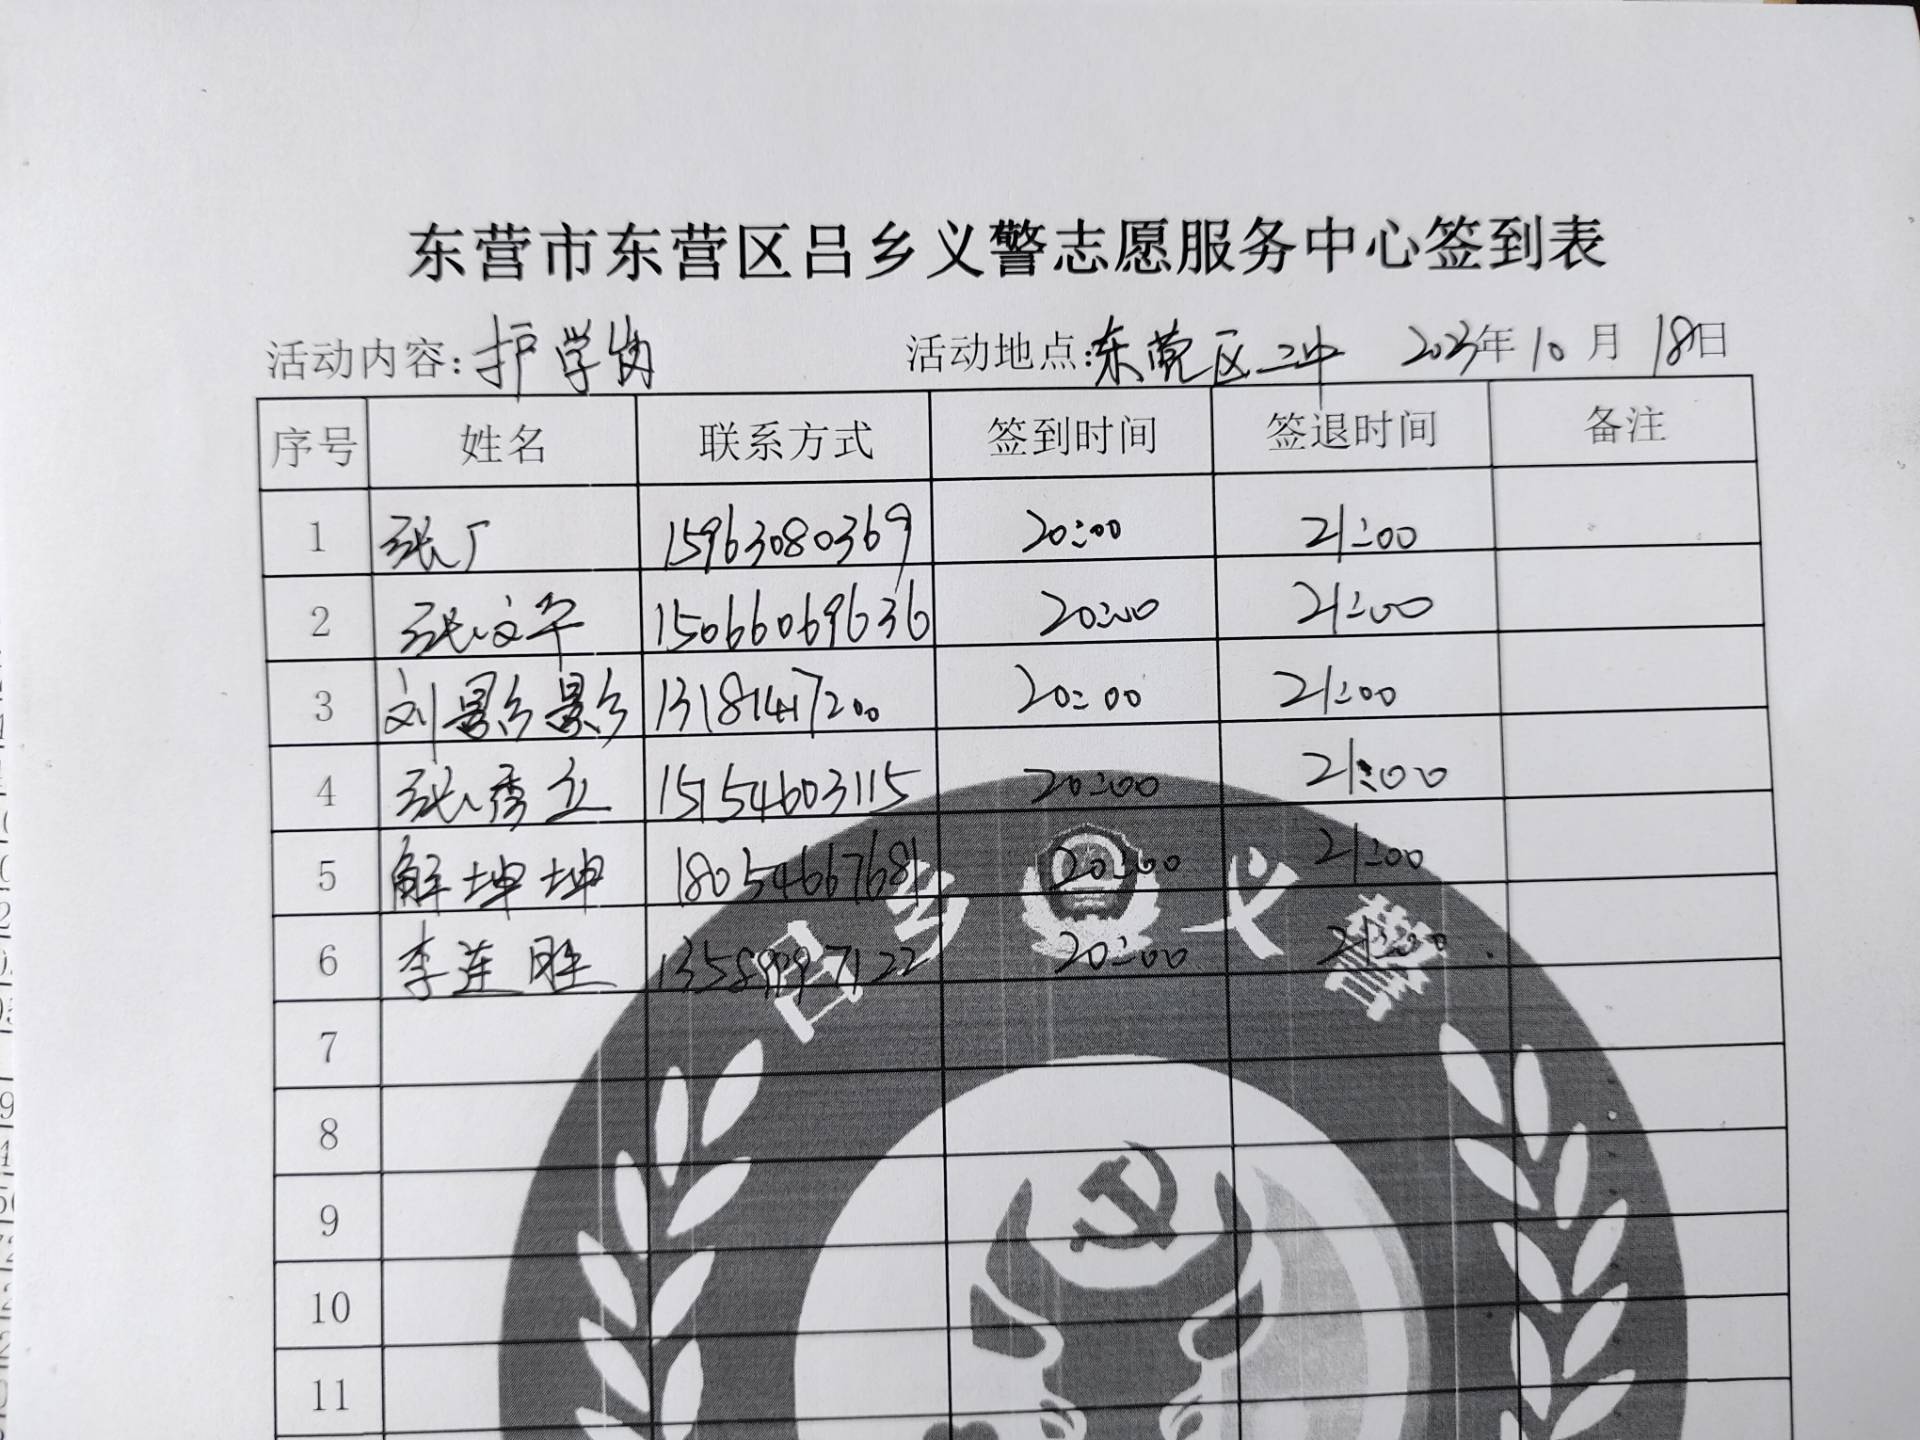 东营市东营区吕乡义警志愿服务中心签到表
活动内容:护学岗 活动地点:东营区二中 2023年10月18日
序号 姓名 联系方式 签到时间 签退时间 备注
1 张厂 15963080369 20:00 21:00
2 张文军 15066069636 20:00 21:00
3 刘影影 13181417200 20:00 21:00
4 张秀立 15154603115 20:00 21:00
5 解坤坤 18054667681 20:00 21:00
6 李连胜 13589997122 20:00 21:00
7
8
9
10
11
吕乡义警